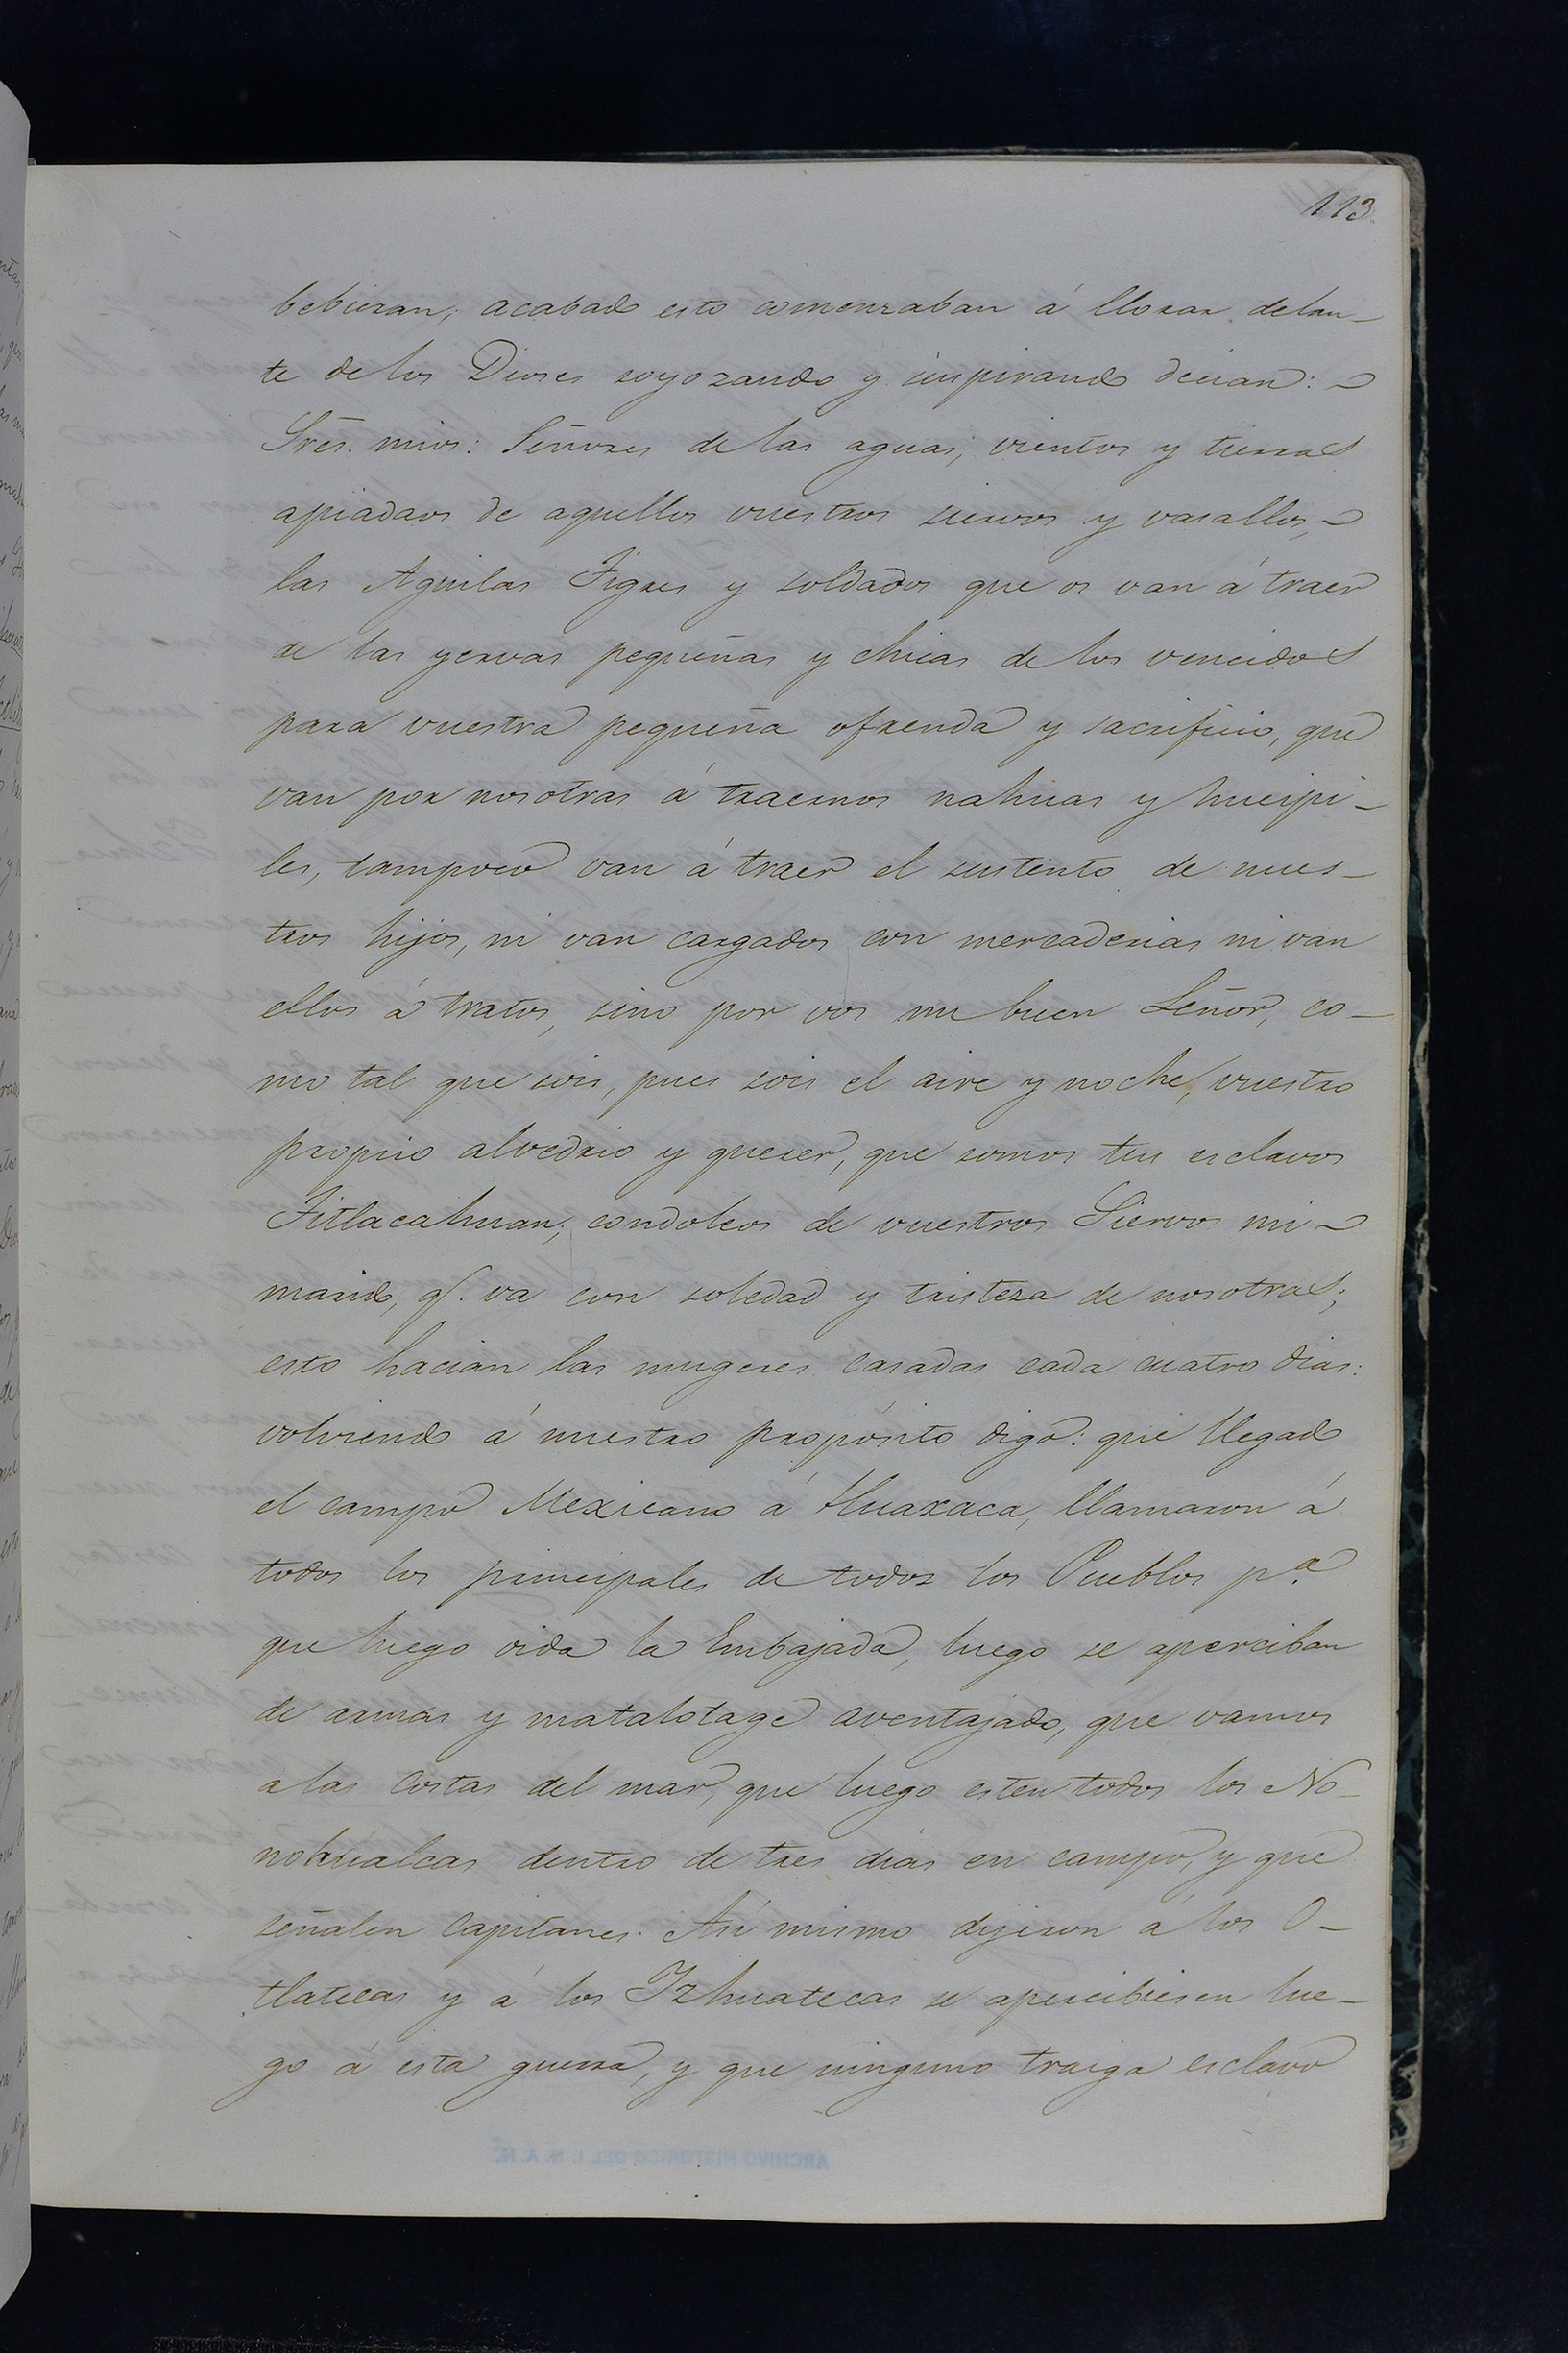 113.
bebieran; acabado esto comenzaban á llorar delan-
te de los Dioses soyozando y suspirando decian:
Sres. mios: Señores de las aguas, vientos y tierras
apiadaos de aquellos vuestros siervos y vasallos,
las Aguilas Tigres y soldados que os van á traer
de las yervas pequeñas y chicas de los vencidos
para vuestra pequeña ofrenda y sacrificio, que
van por nosotras á traernos nahuas y hueipi-
les, tampoco van á traer el sustento de nues-
tros hijos, ni van cargados con mercaderias ni van
ellos á tratos, sino por vos mi buen Señor, co-
mo tal que sois, pues sois el aire y noche, vuestro
proprio alvedrio y querer, que somos tus esclavos
Titlacahuan; condoleos de vuestros Siervos mi
marido, q. va con soledad y tristeza de nosotras;
esto hacian las mugeres casadas cada cuatro dias:
volviendo á nuestro propósito digo: que llegado
el campo Mexicano á Huaxaca, llamaron á
todos los principales de todos los Pueblos pa.
que luego oida la Embajada, luego se aperciban
de armas y matalotage aventajado, que vamos
a las Costas del mar, que luego esten todos los No-
nohualcas dentro de tres dias en campo, y que
señalen Capitanes. Asi mismo dijeron á los O-
tlatecas y á los Izhuatecas se apercibiesen lue-
go á esta guerra, y que ninguno traiga esclavo